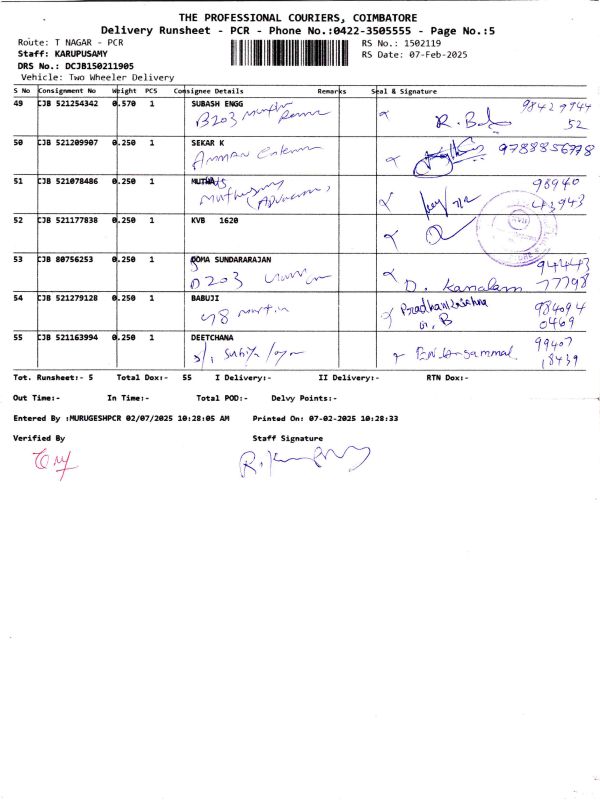 THE PROFESSIONAL COURIERS, COIMBATORE
Delivery Runsheet - PCR - Phone No.:0422-3505555 - Page No.:5
Route: T NAGAR - PCR
RS No.: 1502119
Staff: KARUPUSAMY
RS Date: 07-Feb-2025
DRS No.: DCJB150211905
Vehicle: Two Wheeler Delivery
S No Consignment No Weight PCS Consignee Details Remarks Seal & Signature
49 CJB 521254342 0.570 1 SUBASH ENGG
B203
R. 
98429
52
50 CJB 521209907 0.250 1 SEKAR K
Amman
9788856778
51 CJB 521078486 0.250 1
98940
43943
52 CJB 521177838 0.250 1 KVB 1620
53 CJB 80756253 0.250 1 ROMA SUNDARARAJAN
D203
D. Kamalam
94443
77798
54 CJB 521279128 0.250 1 BABUJI
98 martin
B
984094
0469
55 CJB 521163994 0.250 1 DEETCHANA
99407
18439
Tot. Runsheet:- 5 Total Dox:- 55 I Delivery:- II Delivery:- RTN Dox:-
Out Time:- In Time:- Total POD:- Delvy Points:-
Entered By :MURUGESHPCR 02/07/2025 10:28:05 AM Printed On: 07-02-2025 10:28:33
Verified By Staff Signature